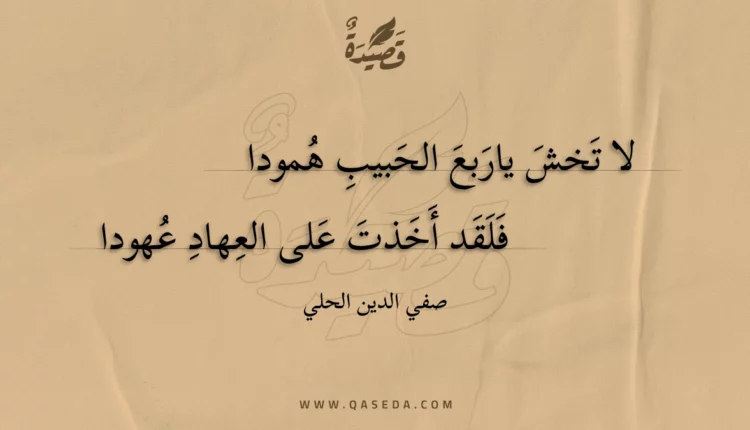 قَصِيْدَةٌ
لا تَخشَ يارَبعَ الحَبيبِ هُمودا
فَلَقَد أَخَذتَ عَلى العِهادِ عُهودا
صفي الدين الحلي
WWW.QASEDA.COM